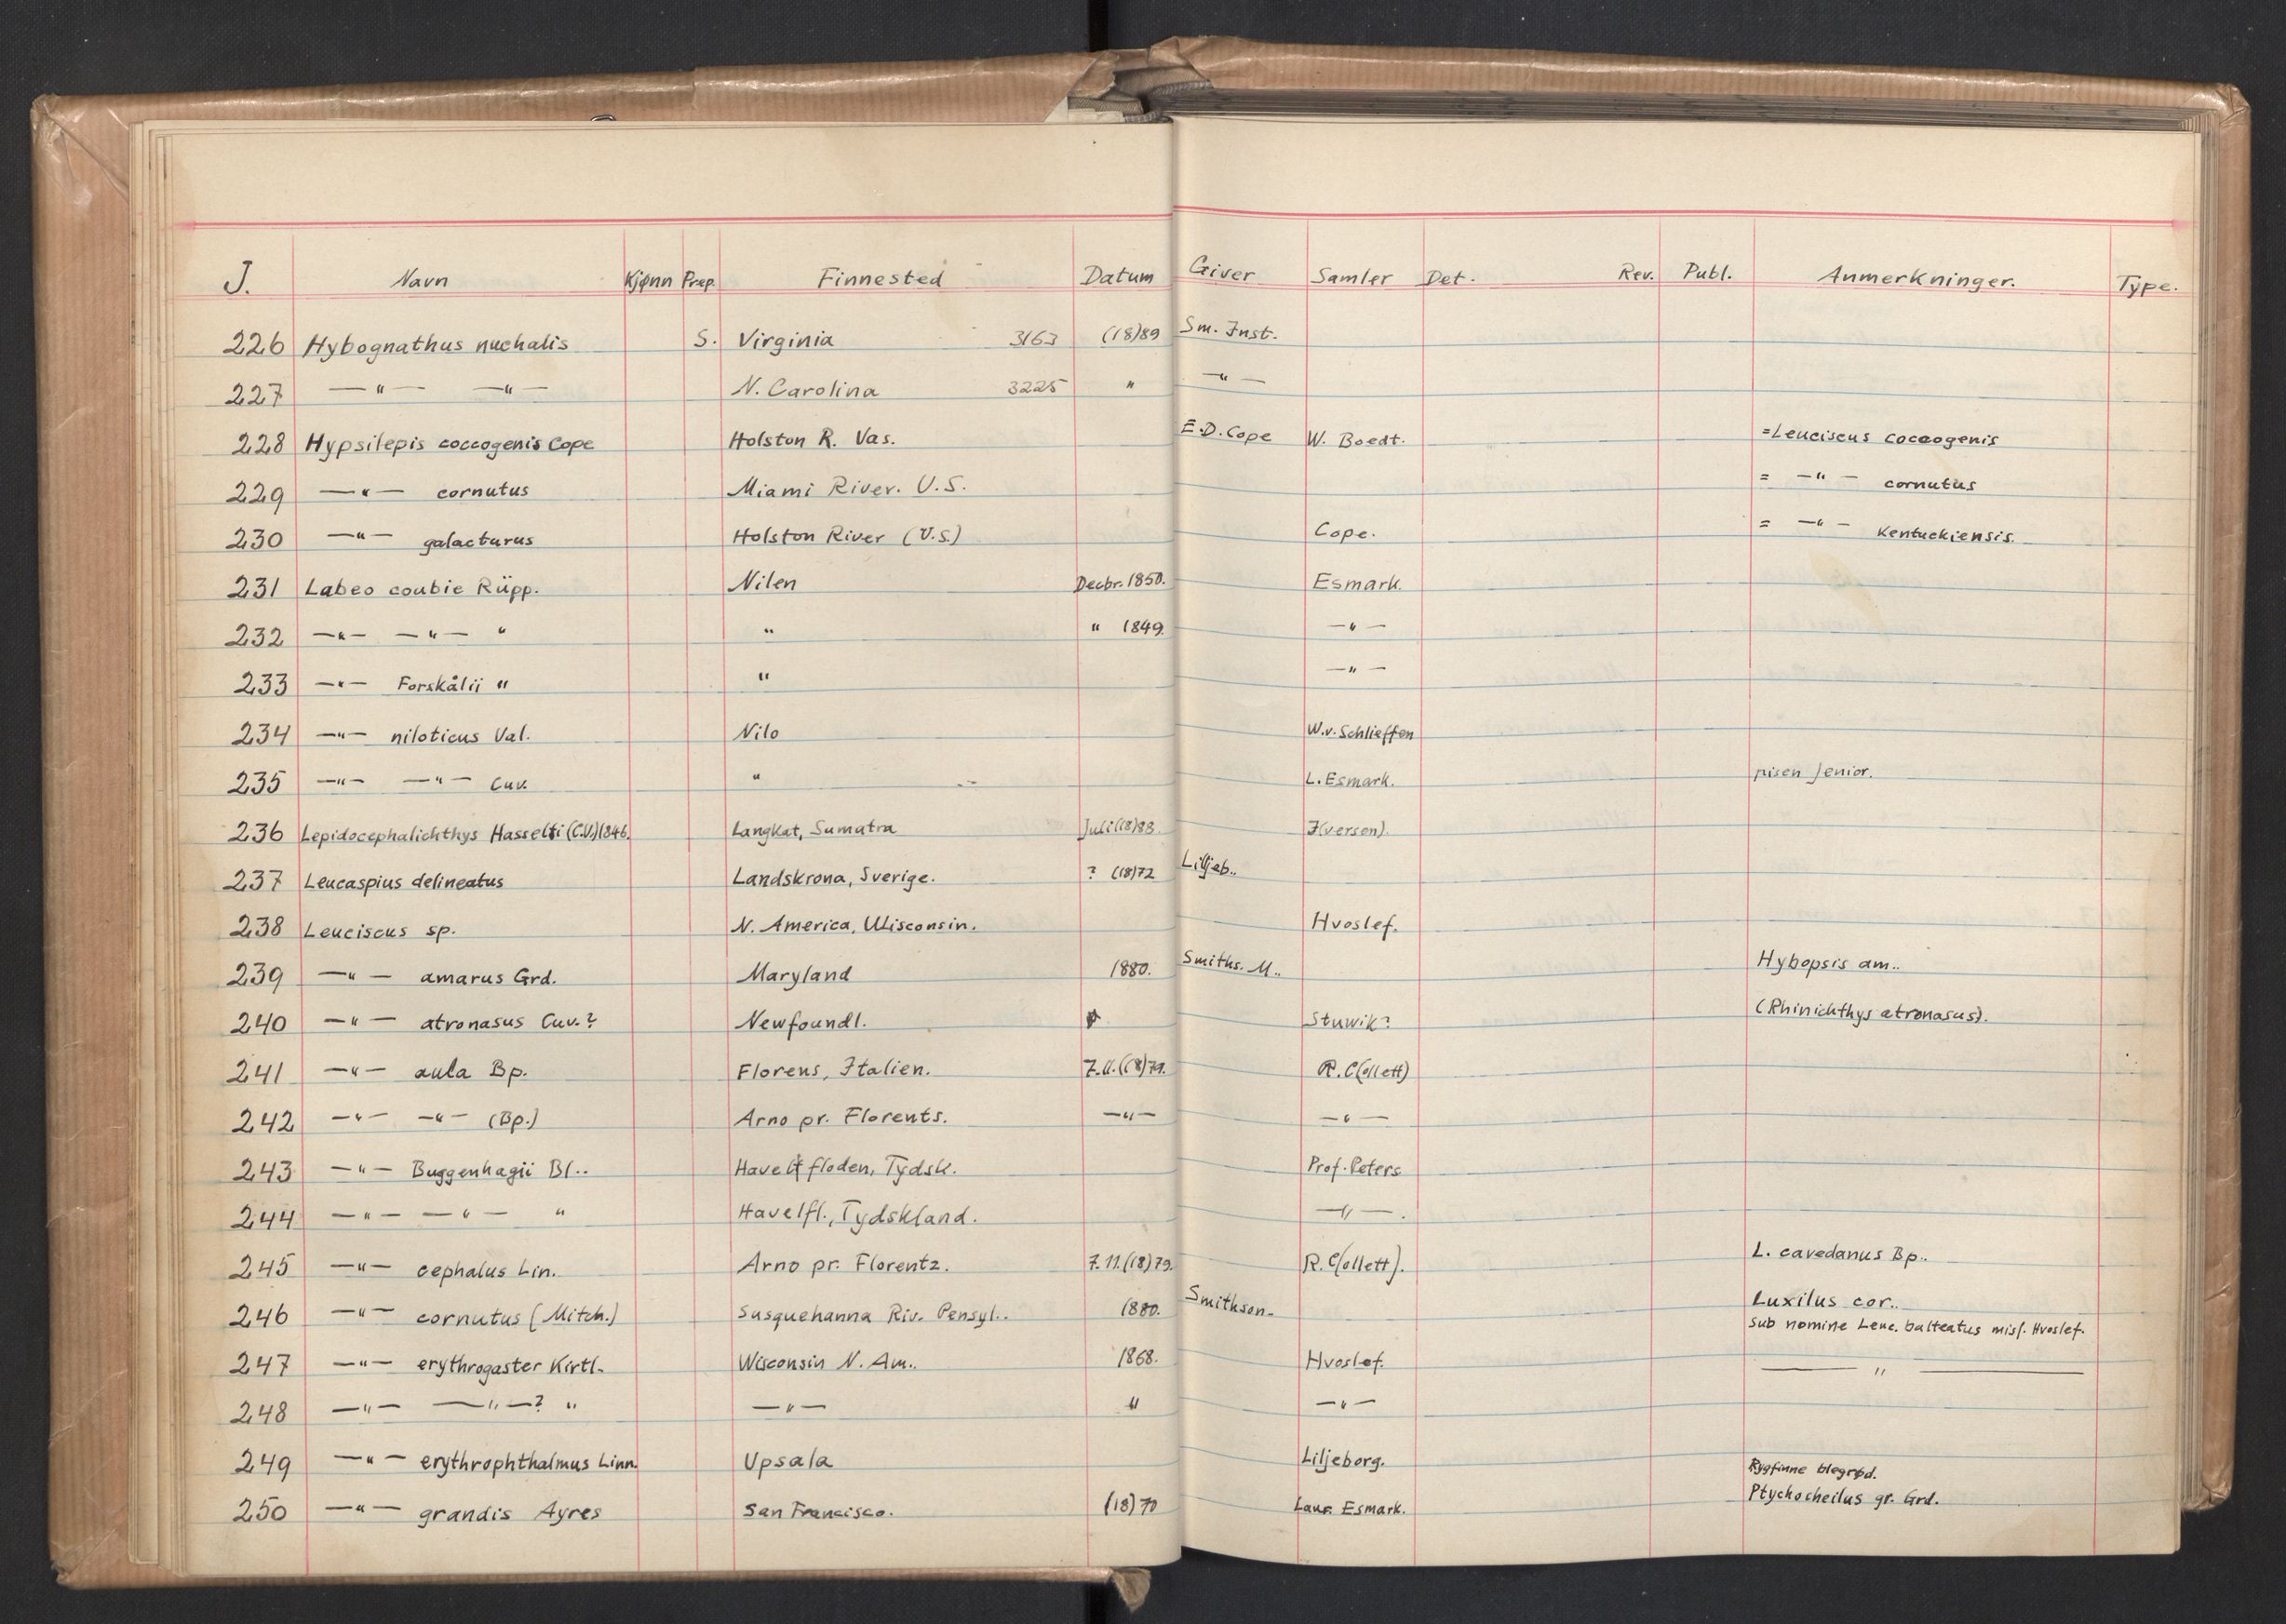 J. Navn Kjønn Prep. Finnested Datum Giver Samler Det. Rev. Publ. Anmerkninger. Type.
226 Hybognathus nuchalis S. Virginia 3163 (18)89 Sm. Inst.
227 —"— —"— N. Carolina 3225 " —"—
228 Hypsilepis coccogenis Cope Holston R. Vas. E.D. Cope W. Boedt. =Leuciscus coccogenis
229 —"— cornutus Miami River. U.S. = —"— cornutus
230 —"— galacturus Holston River (U.S.) Cope. = —"— Kentuckiensis.
231 Labeo coubie Rüpp. Nilen Decbr. 1850. Esmark.
232 —"— —"— " " " 1849. —"—
233 —"— Forskålii " " —"—
234 —"— niloticus Val. Nilo W.v. Schlieffen
235 —"— —"— Cuv. " L. Esmark. Senior.
236 Lepidocephalichthys Hasselti (C.V.) 1846. Langkat, Sumatra Juli (18)88. I(versen).
237 Leucaspius delineatus Landskrona, Sverige. ? (18)72 Liljeb..
238 Leuciscus sp. N. America, Wisconsin. Hvoslef.
239 —"— amarus Grd. Maryland 1880. Smiths. M.. Hybopsis am..
240 —"— atronasus Cuv.? Newfoundl. Stuwik? (Rhinichthys atronasus).
241 —"— aula Bp. Florens, Italien. 7.11.(18)79. R. C(ollett)
242 —"— —"— (Bp.) Arno pr. Florents. —"— —"—
243 —"— Buggenhagii Bl.. Havel floden, Tydsk. Prof. Peters
244 —"— —"— " Havelfl., Tydskland. —"—.
245 —"— cephalus Lin. Arno pr. Florentz. 7.11.(18)79. R. C(ollett). L. cavedanus Bp..
246 —"— cornutus (Mitch.) Susquehanna Riv. Pensyl.. 1880. Smithson. Luxilus cor..
sub nomine Leuc. balteatus misf. Hvoslef.
247 —"— erythrogaster Kirtl. Wisconsin N. Am.. 1868. Hvoslef. —"—
248 —"— —"—? " —"— " —"—
249 —"— erythrophthalmus Linn. Upsala Liljeborg. Rygfinne blegrød.
250 —"— grandis Ayres San Francisco. (18)70 Laur. Esmark. Ptychocheilus gr. Grd.